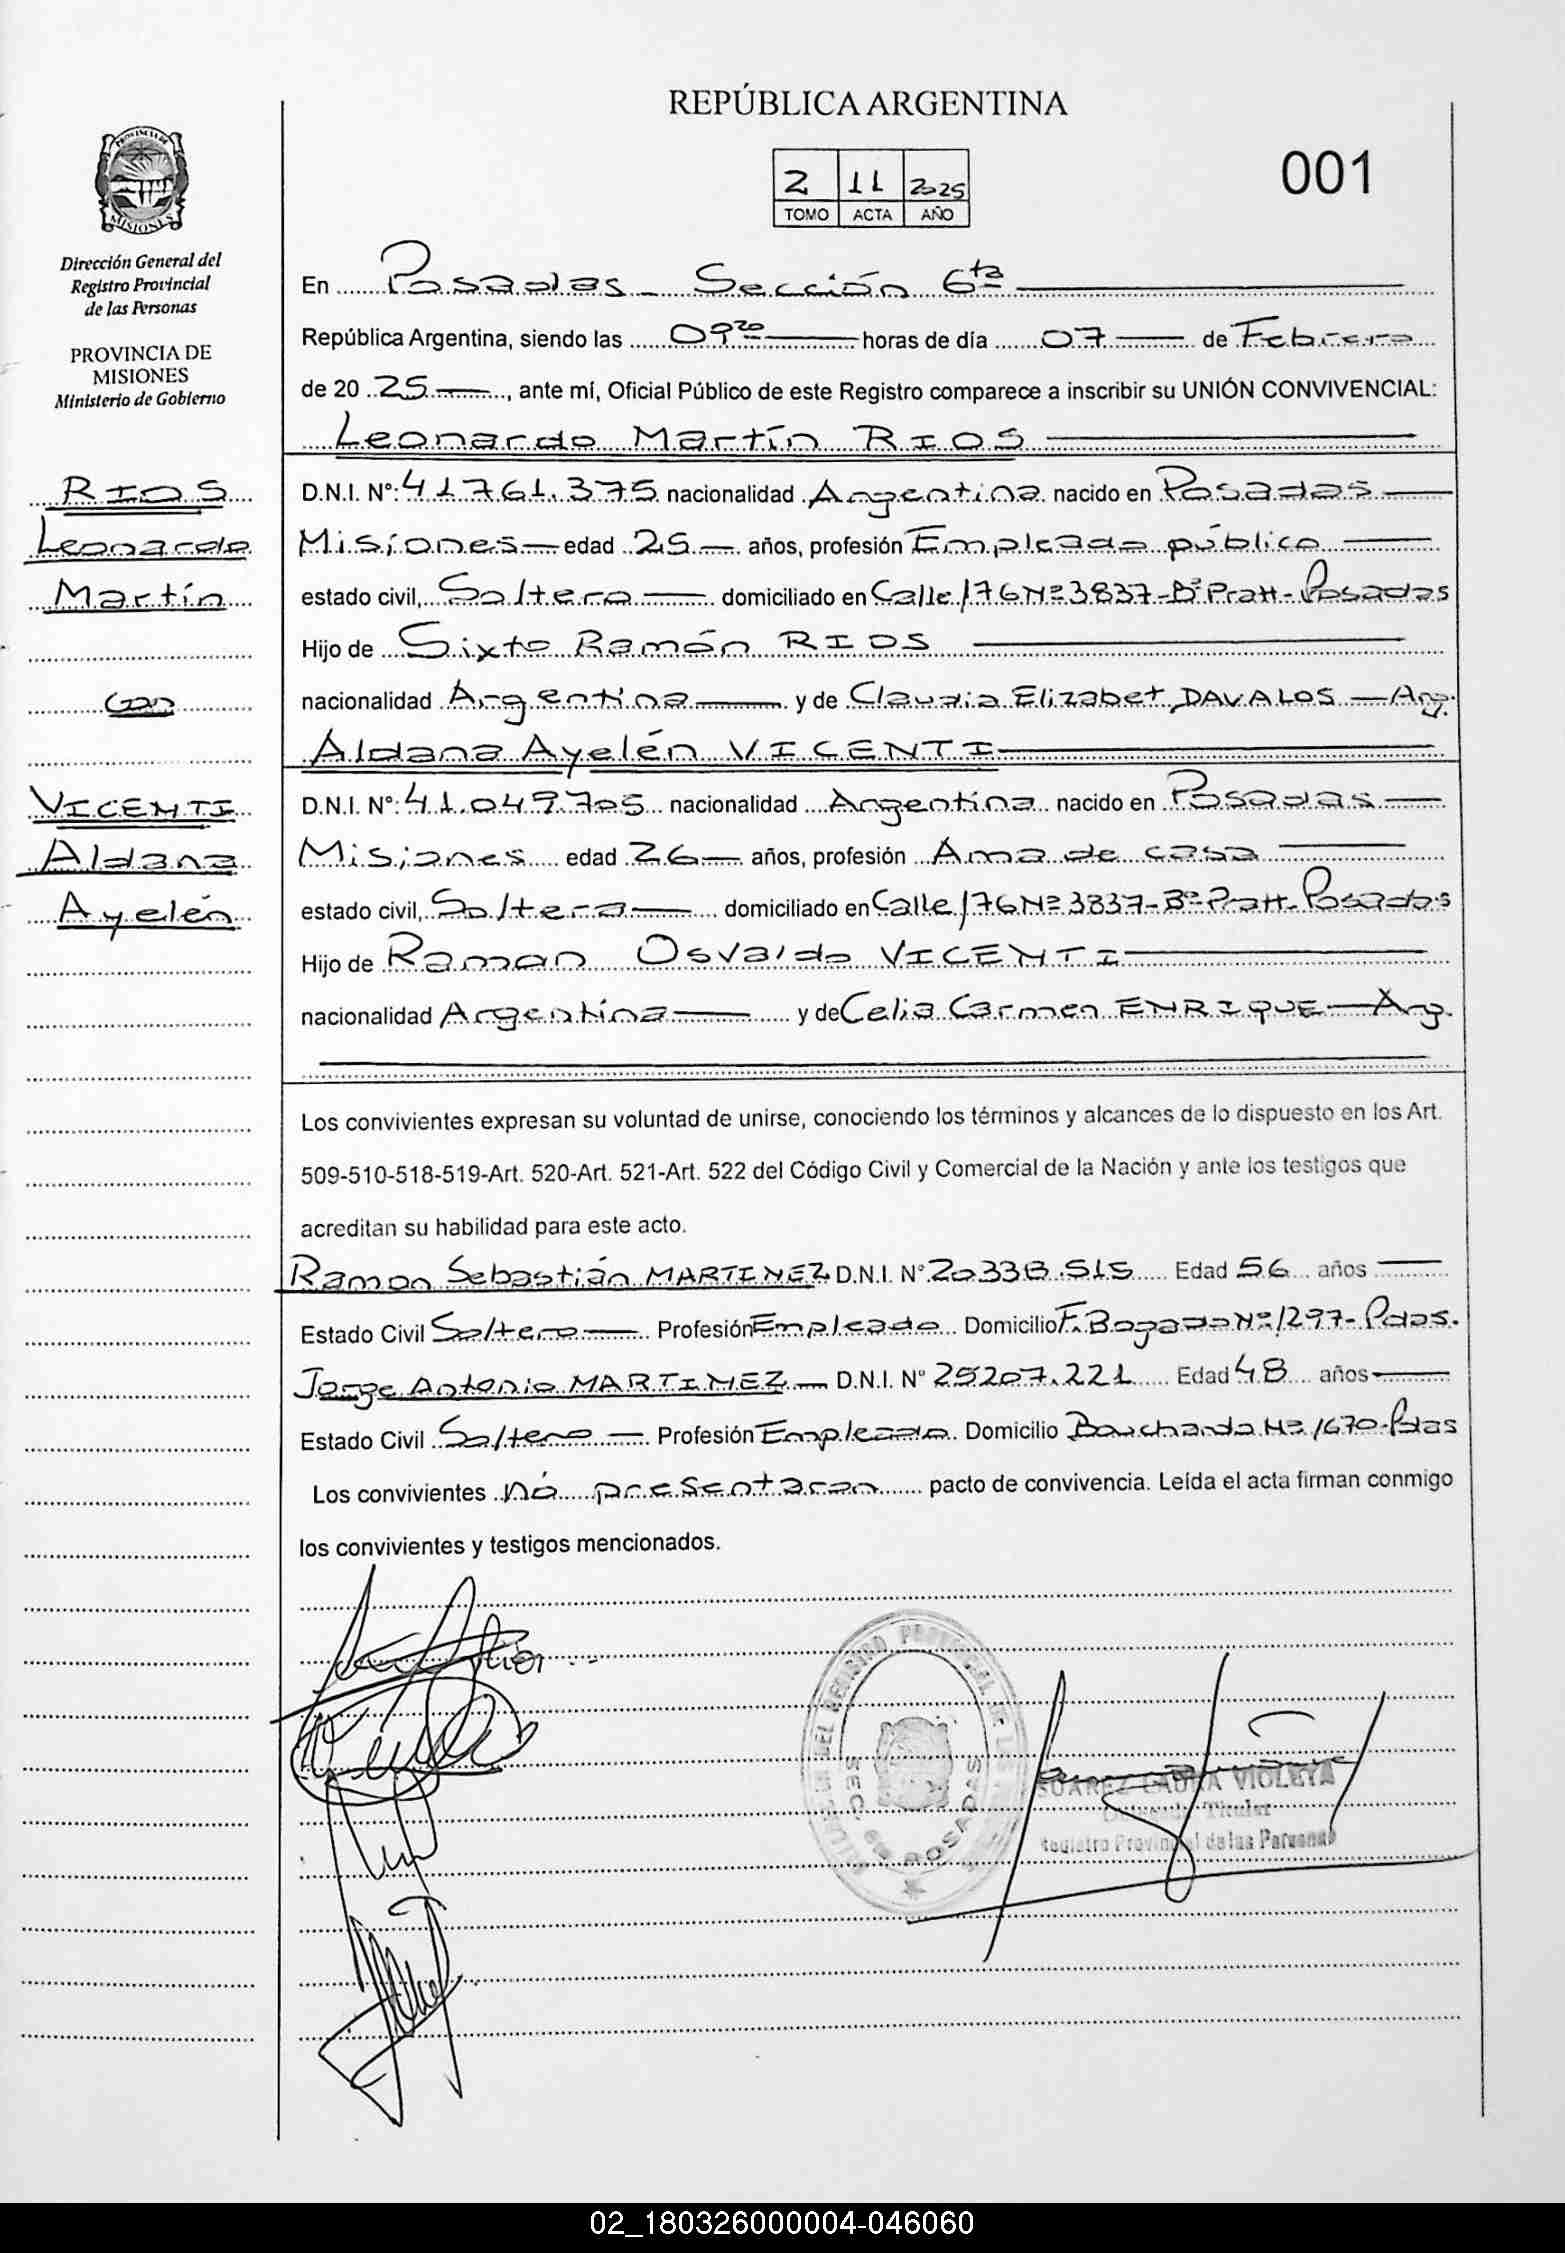 REPÚBLICA ARGENTINA
2 11 2025
TOMO ACTA AÑO
001
PROVINCIA DE
MISIONES
Dirección General del
Registro Provincial
de las Personas
PROVINCIA DE
MISIONES
Ministerio de Gobierno
RIOS
Leonardo
Martín
con
VICENTI
Aldana
Ayelén
En Posadas - Sección 6ta
República Argentina, siendo las 09 20 horas de día 07 de Febrero
de 20 25, ante mí, Oficial Público de este Registro comparece a inscribir su UNIÓN CONVIVENCIAL:
Leonardo Martín RIOS
D.N.I. Nº: 41.761.375 nacionalidad Argentina nacido en Posadas
Misiones edad 25 años, profesión Empleado público
estado civil, Soltero domiciliado en Calle 176 Nº 3837-Bº Pratt-Posadas
Hijo de Sixto Ramón RIOS
nacionalidad Argentina y de Claudia Elizabet DAVALOS - Arg.
Aldana Ayelén VICENTI
D.N.I. Nº: 41.049.705 nacionalidad Argentina nacido en Posadas
Misiones edad 26 años, profesión Ama de casa
estado civil, Soltera domiciliado en Calle 176 Nº 3837-Bº Pratt-Posadas
Hijo de Ramon Osvaldo VICENTI
nacionalidad Argentina y de Celia Carmen ENRIQUE - Arg.
Los convivientes expresan su voluntad de unirse, conociendo los términos y alcances de lo dispuesto en los Art.
509-510-518-519-Art. 520-Art. 521-Art. 522 del Código Civil y Comercial de la Nación y ante los testigos que
acreditan su habilidad para este acto.
Ramon Sebastián MARTINEZ D.N.I. Nº 20338.515 Edad 56 años
Estado Civil Soltero Profesión Empleado Domicilio F. Bogado Nº 1297-Pdas.
Jorge Antonio MARTINEZ D.N.I. Nº 25207.221 Edad 48 años
Estado Civil Soltero Profesión Empleado Domicilio Nº 1670-Pdas
Los convivientes nó presentaron pacto de convivencia. Leída el acta firman conmigo
los convivientes y testigos mencionados.
REGISTRO PROVINCIAL DE LAS
SEC. 6ª POSADAS
SUAREZ LAURA VIOLETA
Titular
Registro Provincial de las Personas
02_180326000004-046060